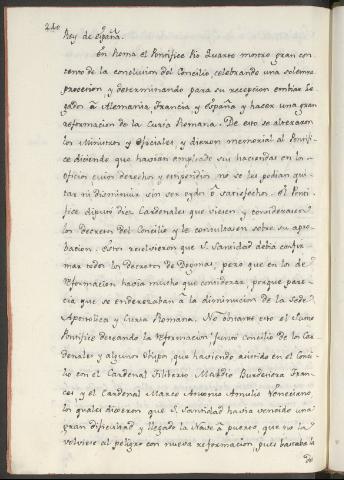 240
Rey de españa.
En Roma el Pontifice Pio Quarto mostro gran con
tento de la conclusion del Concilio, celebrando una solemne
procecion y determinando para su recepcion embiar Le
gados â Alemania, Francia, y españa y hacer una gran
reformacion de la Curia Romana. De esto se alteraron
los Ministros y Oficiales, y dieron memorial al Pontifi-
ce diciendo que havian empleado sus haciendas en los
oficios cuios derechos y estipendios no se les podian qui-
tar ni disminuir sin ser oydos ô satisfechos. el Ponti-
fice diputó diez Cardenales que viesen y considerasen
los Decretos del Concilio y le consultasen sobre su apro-
bacion. estos resolvieron que S. Santidad debia confir
mar todos los Decretos de Dogmas; pero que en los de
Reformacion havia mucho que considerar, porque pare-
cia que se enderezaban â la diminucion de la sede
Apostolica y Curia Romana. No obstante esto el Sumo
Pontifice deseando la reformacion juntó concilio de los Car
denales y algunos Obispos que haviendo asistido en el Conci
lio con el Cardenal Filiberto Naldio Burdesiera Fran-
ces y el Cardenal Marco Antonio Amulio Veneciano,
los quales dixeron que S. Santidad havia vencido una
gran dificultad y llegado la Nave â puerto, que no la
volviese al peligro con nueva reformacion, pues bastaba la